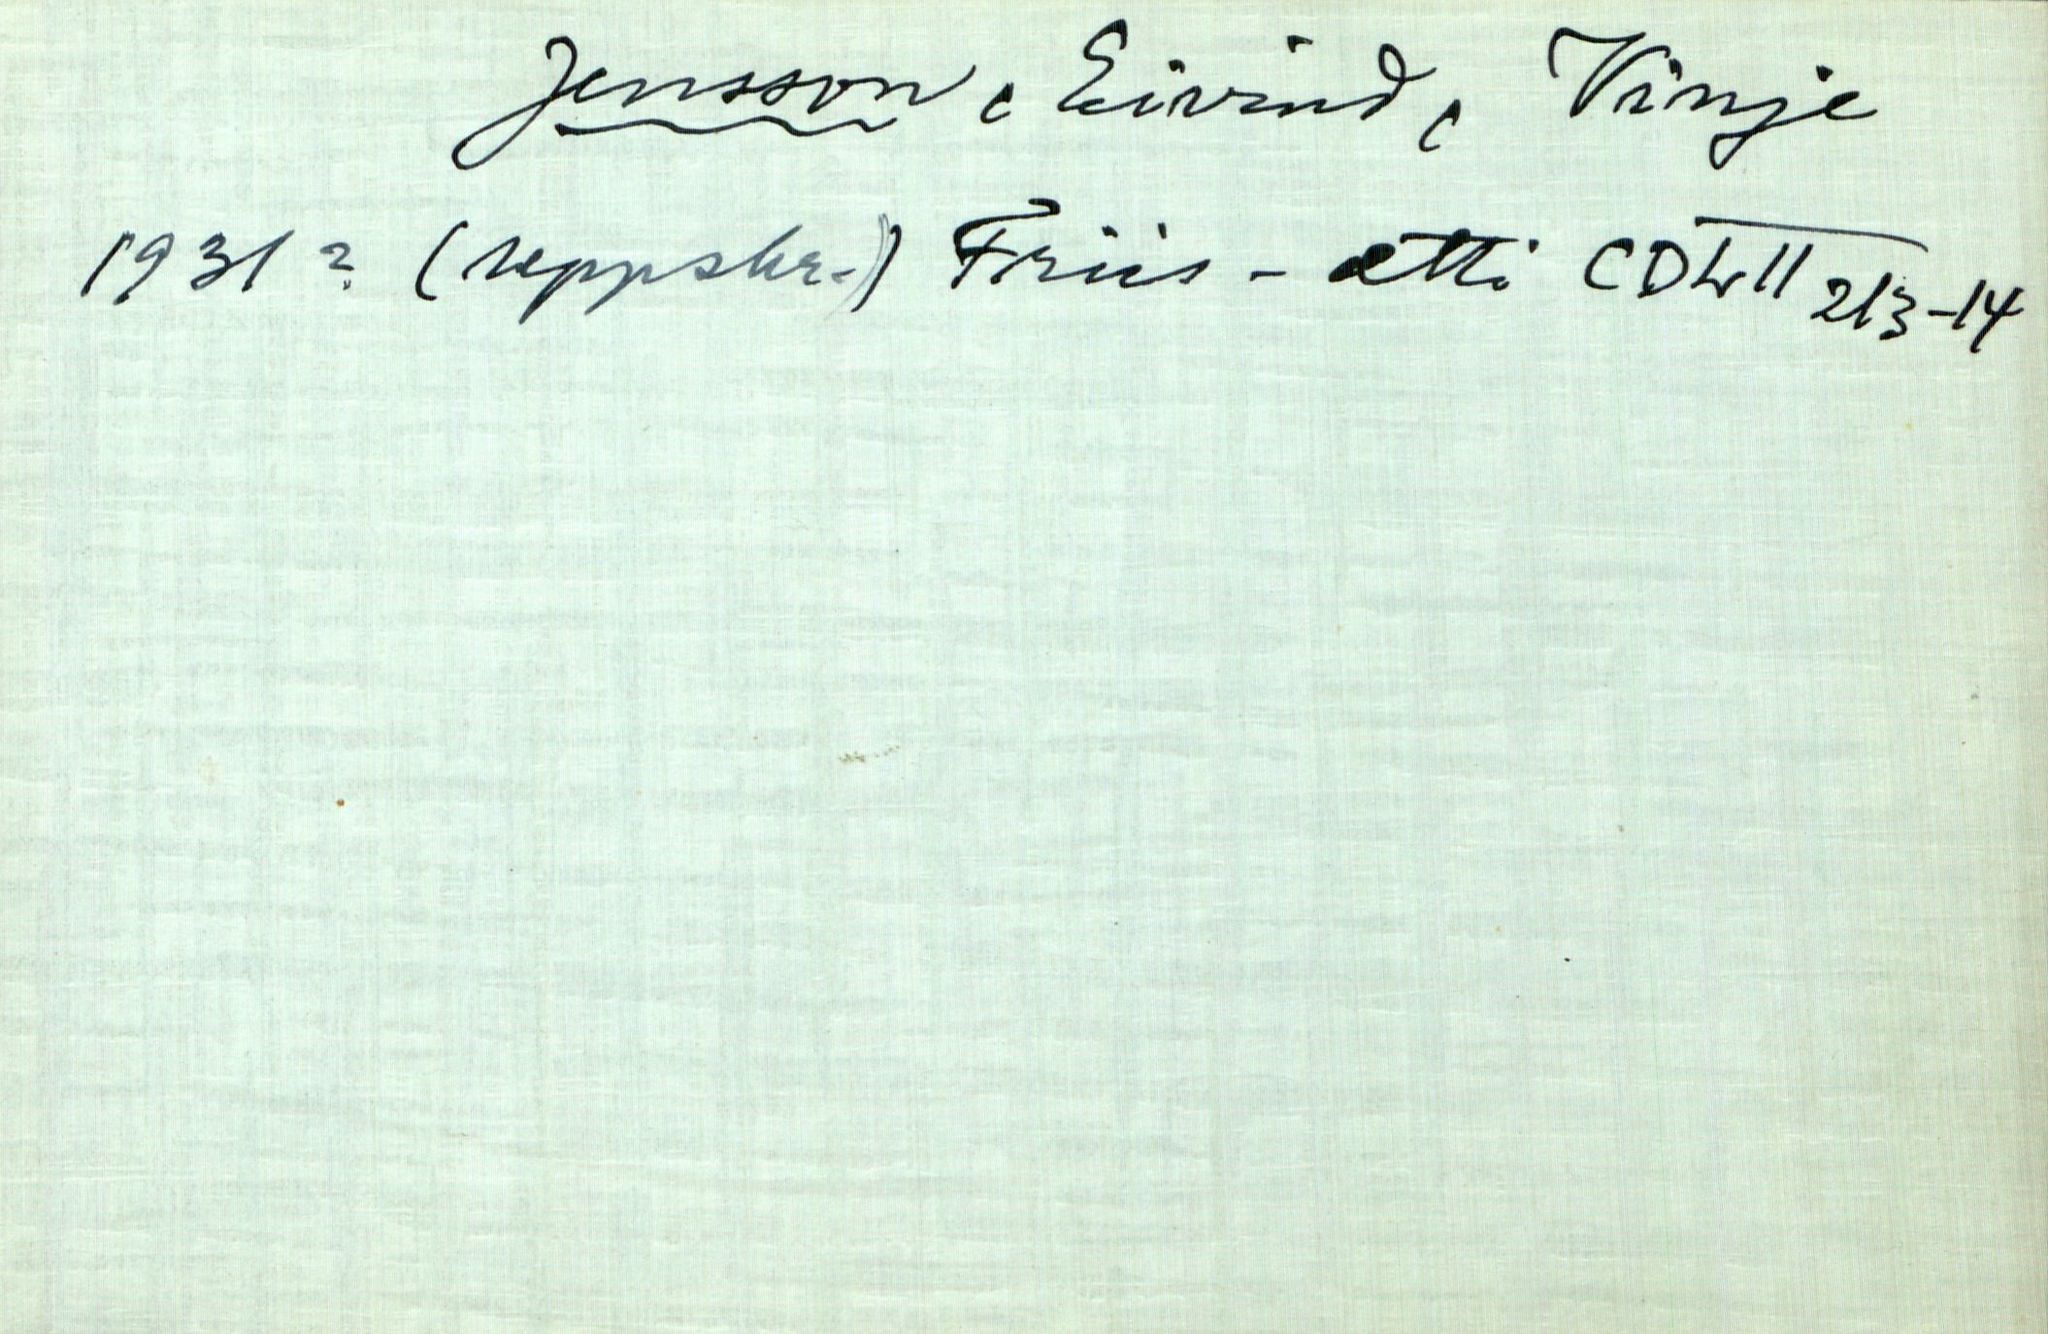 Jensson, Eivind, Vinje
1931? (reppskr.) Friis-ætti CDLII 213-14